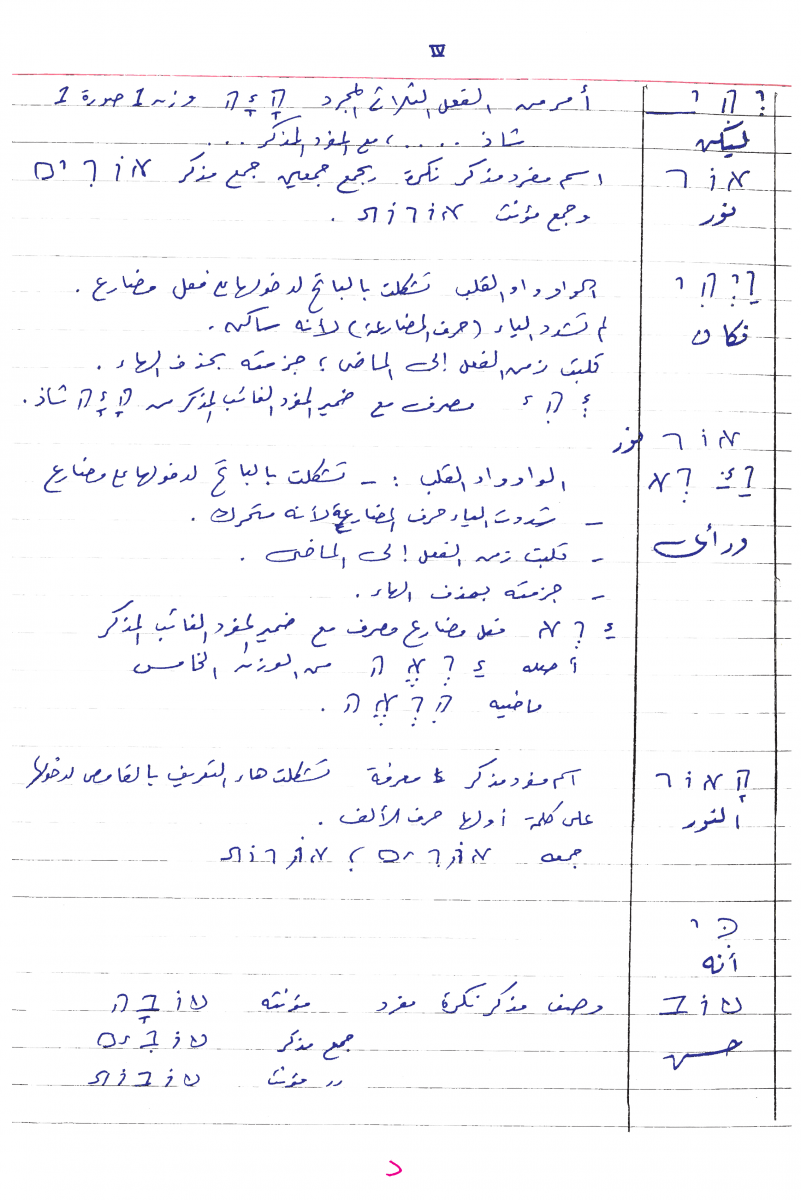 IV
יְהִי أمر من الفعل الثلاثي المجرد הָיָה وزن 1 صورة 1
ليكن شاذ .... ، مع المفرد المذكر ...
אוֹר اسم مفرد مذكر نكرة ويجمع جمعين جمع مذكر אוֹרִים
نور وجمع مؤنث אוֹרוֹת .
וַיְהִי الواو واو القلب تشكلت بالباتح لدخولها على فعل مضارع .
فكان لم تشدد الياء (حرف المضارعة) لأنه ساكن .
قلبت زمن الفعل إلى الماضى ؛ جزمته بحذف الهاء .
مصرف مع ضمير المفرد الغائب المذكر من הָיָה شاذ .
אוֹר نور
וַיַּרְא الواو واو القلب : - تشكلت بالباتح لدخولها على مضارع
- شددت الياء حرف المضارعة لأنه متحرك .
ورأى - قلبت زمن الفعل إلى الماضى .
- جزمته بحذف الهاء .
فعل مضارع مصرف مع ضمير المفرد الغائب المذكر
أصله من الوزن الخامس
ماضيه
הָאוֹר اسم مفرد مذكر معرفة تشكلت هاء التعريف بالقامص لدخولها
النور على كلمة أولها حرف الألف .
جمعه אוֹרִים ؛ אוֹרוֹת
כִּי
أنه
טוֹב وصف مذكر نكرة مفرد مؤنثه טוֹבָה
حسن جمع مذكر טוֹבִים
〃 مؤنث טוֹבוֹת